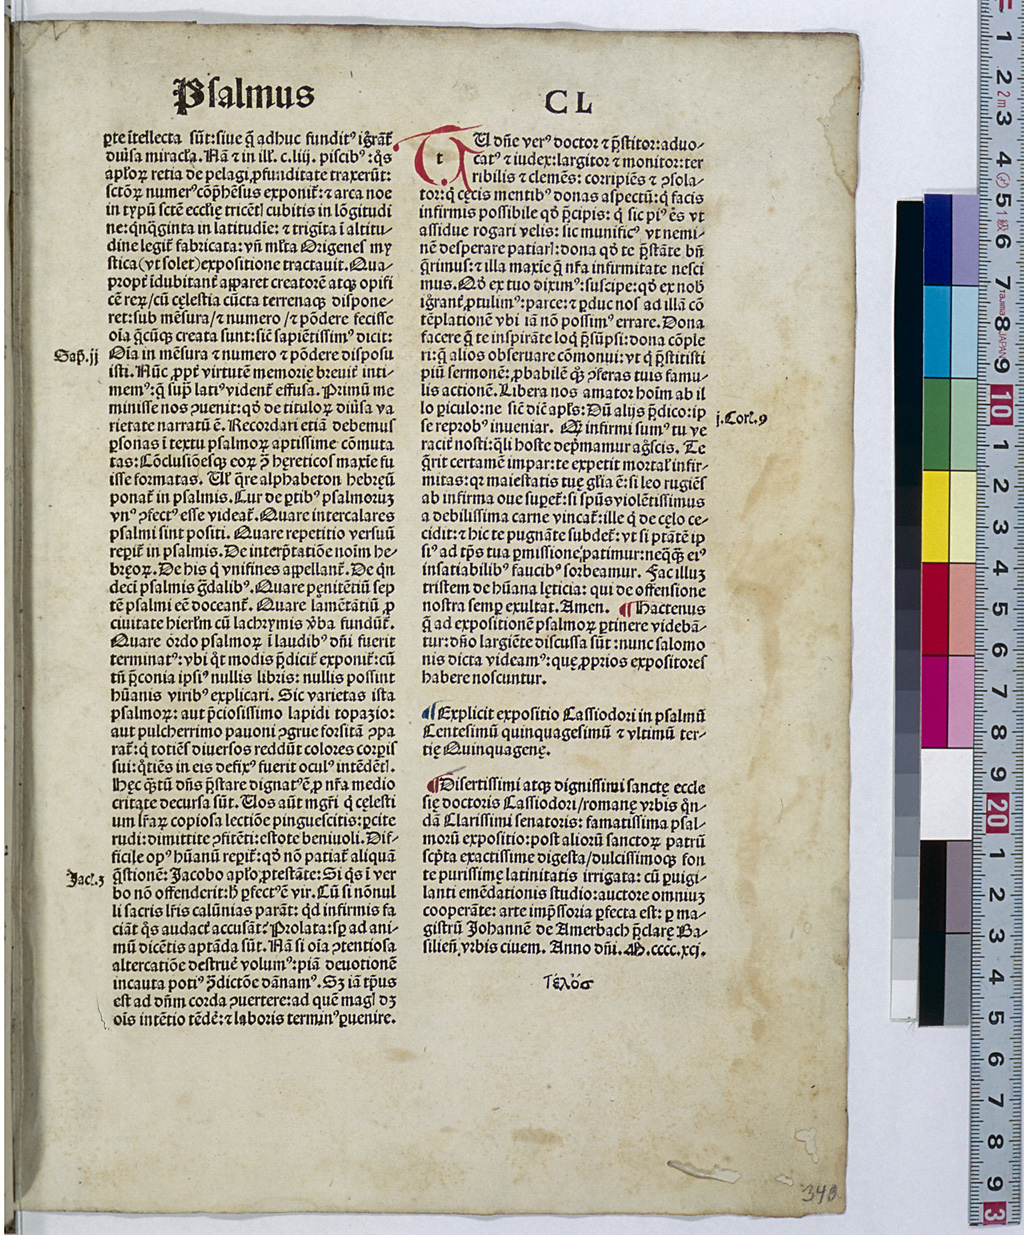 Psalmus
CL
ꝑte ītellecta sūt: siue q̄ adhuc fundit᷒ igr̄at᷑
diuīsa miracl̓a. Nā ⁊ in ill̓. c.liij. piscib᷒: q̄s
apl̓oꝝ retia de pelagi ꝓfunditate traxerūt:
sctōꝝ numer᷒ cōp̄hēsus exponit᷑: ⁊ arca noe
in typū sctē eccl̓ie tricēt̓ cubitis in lōgitudi
ne: qn̄qginta in latitudie: ⁊ trigīta ī altitu/
dine legit᷑ fabricata: vn̄ ml̓ta Origenes my
stica (vt solet) expositione tractauit. Qua/
propt̓ idubitant̓ apparet creatorē atqꝫ opifi
cē reꝝ/ cū cęlestia cūcta terrenaqꝫ dispone/
ret: sub mēsura/ ⁊ numero / ⁊ pōdere fecisse
oīa q̄cūqꝫ creata sunt: sic̄ sapiētissim᷒ dicit:
Sap̄.ij
Oīa in mēsura ⁊ numero ⁊ pōdere disposu
isti. Nūc ꝓpt̓ virtutē memorię breuit̓ inti/
mem᷒: q̄ sup̄ lati᷒ vident᷑ effusa. Primū me
minisse nos ꝯuenit: qō de tituloꝝ diuīsa va
rietate narratū ē. Recordari etiā debemus
ꝑsonas ī textu psalmoꝝ aptissime cōmuta
tas: Cōclusiōesqꝫ eoꝝ ꝯ̄ hęreticos maxie fu
isse formatas. Ul̓ q̄re alphabeton hebręū
ponat᷑ in psalmis. Cur de ꝑtib᷒ psalmoruꝫ
vn᷒ ꝓfect᷒ esse videat᷑. Quare intercalares
psalmi sint positi. Quare repetitio versuū
repit᷑ in psalmis. De interp̄tatiōe noīm he/
bręoꝝ. De his q̄ vnifines appellant᷑. De qn̄
deci psalmis ḡdalib᷒. Quare penitētiū sep
tē psalmi eē doceant᷑. Quare lamētātiū ꝓ
ciuitate hierl̓m cū lachrymis v̓ba fundūt᷑.
Quare ordo psalmoꝝ ī laudib᷒ dn̄i fuerit
terminat᷒: vbi q̄t modis p̄dicit᷑ exponit᷑: cū
tn̄ p̄conia ipsi᷒ nullis libris: nullis possint
hūanis virib᷒ explicari. Sic varietas ista
psalmoꝝ: aut p̄ciosissimo lapidi topazio:
aut pulcherrimo pauoni ꝯgrue forsitā ꝯpa
rat᷑: q̄ totiēs diuersos reddūt colores corꝑis
sui: q̄tiēs in eis defix᷒ fuerit ocul᷒ intēdēt̓.
Hęc q̄stū dn̄s p̄stare dignat᷒ ē, ꝓ nr̄a medio
critate decursa sūt. Uos aūt mgr̄i q̄ cęlesti
um lr̄aꝝ copiosa lectiōe pinguescitis: ꝑcite
rudi: dimittite ꝯfitēti: estote beniuoli. Dif/
ficile op᷒ hūanū repit᷑: qō nō patiat᷑ aliquā
Jac̓.3
q̄stionē: Jacobo apl̓o ꝓtestāte: Si q̄s ī ver
bo nō offenderit: h̄ ꝑfect᷒ ē vir. Cū si nōnul
li sacris lr̄is calūnias parāt: q̄d infirmis fa
ciāt q̄s audact̓ accusāt? Prolata: sꝫ ad ani/
mū dicētis aptāda sūt. Nā si oīa ꝯtentiosa
altercatiōe destruet̓ volum᷒: piā deuotionē
incauta poti᷒ p̄dictōe dānam᷒. Sꝫ iā tp̄us
est ad dn̄m corda ꝯuertere: ad quē mag̓ dꝫ
oīs intētio tēde᷑: ⁊ laboris termin᷒ ꝑuenire.
t
TU dn̄e ver᷒ doctor ⁊ p̄stitor: aduo/
cat᷒ ⁊ iudex: largitor ⁊ monitor: ter
ribilis ⁊ clemēs: corripiēs ⁊ ꝯsola/
tor: q̄ cęcis mentib᷒ donas aspectū: q̄ facis
infirmis possibile qō p̄cipis: q̄ sic pi᷒ es vt
assidue rogari velis: sic munific᷒ vt nemi/
nē desperare patiar̓: dona qō te p̄stāte bn̄
q̄rimus: ⁊ illa maxie q̄ nr̄a infirmitate nesci
mus. Qō ex tuo dixim᷒: suscipe: qō ex nob̓
igrant̓ ꝓtulim᷒: parce: ⁊ ꝑduc nos ad illā cō
tēplationē vbi iā nō possim᷒ errare. Dona
facere q̄ te inspirāte loq̄ p̄sūpsi: dona cōple
ri: q̄ alios obseruare cōmonui: vt q̄ p̄stitisti
piū sermonē: ꝓbabilē q̄qꝫ ꝯferas tuis famu/
lis actionē. Libera nos amator hoīm ab il
lo ꝑiculo: ne sic̄ dic̄ apl̓s: Dū alijs p̄dico: ip
j.Cor̓.9
se reprob᷒ inueniar. Qꝛ infirmi sum᷒ tu ve
racit̓ nosti: q̄li hoste dep̄mamur ag̓scis. Te
q̄rit certamē impar: te expetit mortal̓ infir/
mitas: qꝛ maiestatis tuę gl̓ia ē: si leo rugiēs
ab infirma oue supet᷑: si sp̄us violētissimus
a debilissima carne vincat᷑: ille q̄ de cęlo ce/
cidit: ⁊ hic te pugnāte subdet᷑: vt si ptātē ip
si᷒ ad tp̄s tua ꝑmissione patimur: neqꝫ ei᷒
insatiabilib᷒ faucib᷒ sorbeamur. Fac illuꝫ
tristem de hūana lęticia: qui de offensione
nostra semꝑ exultat. Amen. ¶ Hactenus
q̄ ad expositionē psalmoꝝ ꝑtinere videbā/
tur: dn̄o largiēte discussa sūt: nunc salomo
nis dicta videam᷒: quę ꝓprios expositores
habere noscuntur.
¶ Explicit expositio Cassiodori in psalmū
Centesimū quinquagesimū ⁊ vltimū ter/
tię Quinquagenę.
¶ Disertissimi atqꝫ dignissimi sanctę eccle
się doctoris Cassiodori/ romanę vrbis qn̄/
dā Clarissimi senatoris: famatissima psal/
morū expositio: post aliorū sanctoꝝ patrū
scpta exactissime digesta/ dulcissimoqꝫ fon
te purissimę latinitatis irrigata: cū ꝑuigi/
lanti emēdationis studio: auctore omniuꝫ
cooperāte: arte imp̄ssoria ꝑfecta est: ꝑ ma/
gistrū Johannē de Amerbach p̄clarę Ba/
silieñ. vrbis ciuem. Anno dn̄i. M.cccc.xcj.
Τέλος
340